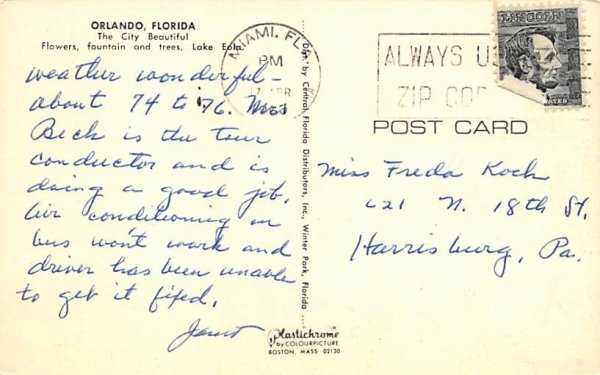 ORLANDO, FLORIDA
The City Beautiful
Flowers, fountain and trees, Lake Eola.
weather wonderful -
about 74 to 76. Miss
Beck is the tour
conductor and is
doing a good job.
Air conditioning on
bus won't work and
driver has been unable
to get it fixed.
Janet
Dist. by Central Florida Distributors, Inc., Winter Park, Florida
Plastichrome
by COLOURPICTURE
BOSTON, MASS. 02130
MIAMI, FLA
PM
APR
ALWAYS U
ZIP COD
LINCOLN
POST CARD
Miss Freda Koch
621 N. 18th St,
Harrisburg, Pa.